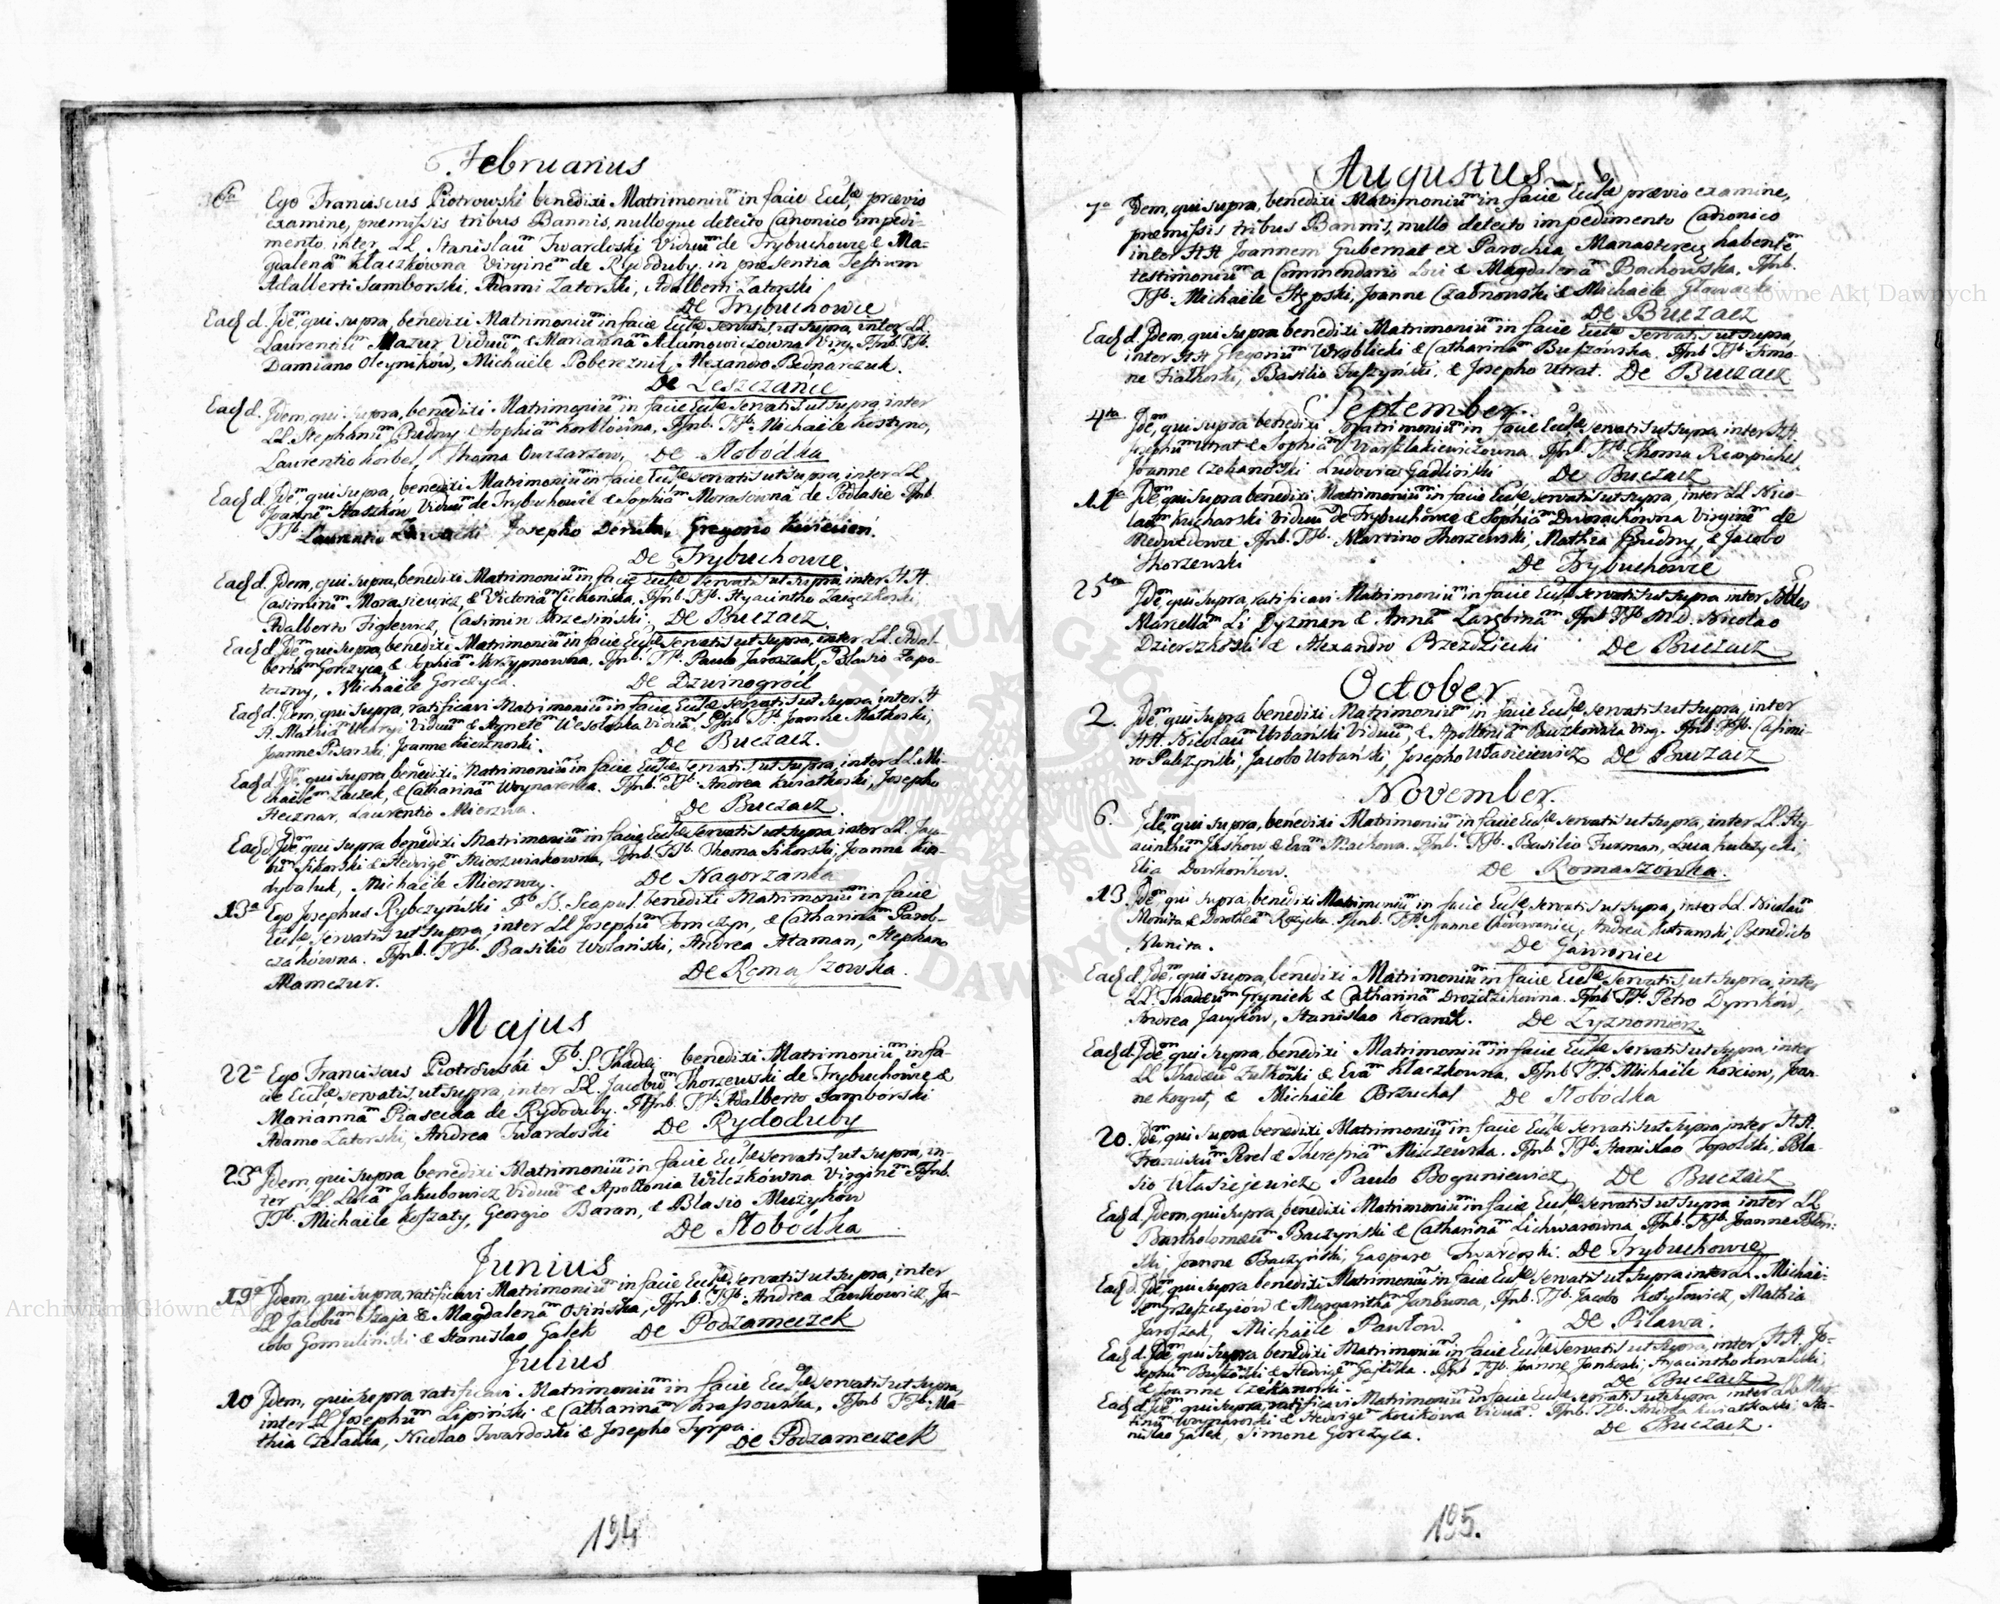 Februarius
6ta Ego Franciscus Piotrowski benedixi Matrimoniū in facie Eccl̃ae, prævio
examine, præmissis tribus Bannis, nulloque detecto Canonico impedi-
mento inter LL Stanislaum Twardoski Viduum de Trybuchowce & Ma-
gdalenam Klaczkowna Virginem de Rydoduby. in præsentia Testium
Adalberti Samborski, Adami Zatorski, Adalberti Zatorski
De Trybuchowce
Eadē d. Idem, qui supra, benedixi Matrimoniū in facie Eccl̃ae servatis, ut supra, inter LL.
Laurentium Mazur Viduum & Mariannam Adamowiczowna Virg. Pñtib. TTb.
Damiano Oleyników, Michaële Pobereznik, Alexandro Bednarczuk.
De Leszczańce
Eadē d. Idem, qui supra, benedixi Matrimoniū in facie Eccl̃ae servatis ut supra inter
LL. Stephanum Budny & Sophiam Korblowna, Pñtib. TTb. Michaële Kostyno,
Laurentio Korbel, Thoma De Slobodka
Eadē d. Idem qui supra, benedixi Matrimoniū in facie Eccl̃ae servatis ut supra, inter LL
Joannem Staszkow Viduum de Trybuchowce & Sophiam Morasowna de Podlasie Pñtib.
TTb. Laurentio Josepho Derula, Gregorio
De Trybuchowce
Eadē d. Idem, qui supra, benedixi Matrimoniū in facie Eccl̃ae servatis ut supra inter HH.
Casimirum Morasiewicz, & Victoriam Cichońska, Pñtib. TTb. Hyacintho Zaięczkoski
Adalberto Figlewicz, Casimiro Brzesiński De Buczacz
Eadē d. Idem, qui supra, benedixi Matrimoniū in facie Eccl̃ae servatis ut supra, inter LL. Adal-
bertum Gorczyca, & Sophiam Skrzypnowna, Pñtib. TTb. Paulo Jaroszak, Blasio Zapo-
toczny, Michaële Gorczyca. De Dzwinogród
Eadē d. Idem, qui supra, ratificavi Matrimoniū in facie Eccl̃ae servatis ut supra, inter H
H. Viduum & Agnetem Wesołoska Viduam. Pñtib. TTb. Joanne Matkoski,
Joanne Pisarski Joanne De Buczacz.
Eadē d. Idem qui supra benedixi Matrimoniū in facie Eccl̃ae servatis, ut supra, inter LL. Mi-
chaëlem Zaczek, & Catharinam Woynarowka. Pñtib. TTb. Andrea Kwiatkoski, Josepho
Hecznar, Laurentio Mierzwa. De Buczacz
Eadē d. Idem qui supra benedixi Matrimoniū in facie Eccl̃ae servatis ut supra inter LL. Jaco-
bum Sikorski & Hedvigem Mierzwiakowna, Pñtib. TTb. Thoma Sikorski, Joanne Kin-
dybaluk, Michaële Mierzwy. De Nagorzanka
13a Ego Josephus Rybczyński Pb SS. Scapul. benedixi Matrimoniū in facie
Eccl̃ae servatis ut supra, inter LL Josephum Tomczyn, & Catharinam Parob-
czakówna. Pñtib. TTb. Basilio Wolański, Andrea Ataman, Stephano
Mamczur. De Romaszowka.
Majus
22a Ego Franciscus Piotrowski Pb. S. Thadei benedixi Matrimoniū in fa-
cie Eccl̃ae servatis, ut supra, inter LL. Jacobum Skorzewski de Trybuchowce &
Mariannam Piasecka de Rydoduby. Pñtib. TTb. Adalberto Samborski
Adamo Zatorski, Andrea Twardoski De Rydoduby
23a Idem, qui supra benedixi Matrimoniū in facie Eccl̃ae servatis ut supra, in-
ter LL Lucam Jakubowicz Viduum & Apollonia Wilczkówna Virginem Pñtib.
TTb. Michaële Koszaty, Georgio Baran, & Blasio Muzyków
De Slobódka
Junius
19a Idem, qui supra, ratificavi Matrimoniū in facie Eccl̃ae servatis ut supra, inter
LL Jacobum Szaja & Magdalenam Osińska, Pñtib. TTb. Andrea Lankowicz, Ja-
cobo Gomuliński & Stanislao Gałek De Podzameczek
Julius
10 Idem, qui supra ratificavi Matrimoniū in facie Eccl̃ae servatis ut supra,
inter LL Josephum Lipiński & Catharinam Krasowska, Pñtib TTb. Ma-
thia Czeladka, Nicolao Twardoski & Josepho Tyrpa
De Podzameczek
194
Augustus
7a Idem, qui supra, benedixi Matrimoniū in facie Eccl̃ae prævio examine,
præmissis tribus Bannis, nullo detecto impedimento Canonico
inter HH Joannem Gubernat ex Parochia Manasterczy habentem
testimonium a Commendario Loci & Magdalenam Bochowska, Pñtib.
TTb. Michaële Stepski, Joanne Czabnowski & Michaële Głowacki
De Buczacz
Eadē d. Idem, qui supra benedixi Matrimoniū in facie Eccl̃ae servatis ut supra,
inter HH Gregorium Wroblicki & Catharinam Buszowska. Pñtib TTb. Simo-
ne Fialkoski, Basilio Puszyński, & Josepho Utrat. De Buczacz
September
4ta Idem, qui supra benedixi Matrimoniū in facie Eccl̃ae servatis ut supra, inter HH.
Josephum Utrat & Sophiam Pñtib. TTb. Thoma
Joanne Czekanoski Ludovico Gadliński De Buczacz
11a Idem qui supra benedixi Matrimoniū in facie Eccl̃ae servatis ut supra, inter LL Nico-
laum Kucharski Viduum de Trybuchowce & Sophiam Dworackówna Virginem de
Medwedowce Pñtib. TTb. Martino Skorzewski, Mathia Budny, & Jacobo
Skorzewski De Trybuchowce
25ta Idem, qui supra, ratificavi Matrimoniū in facie Eccl̃ae servatis ut supra inter Nobles
Marcellum Li Dyzman & Annam Larębina Pñtib TTb M.D. Nicolao
Dzierszkoski & Alexandro Brzeździecki De Buczacz
October
2. Idem, qui supra benedixi Matrimoniū in facie Eccl̃ae, servatis ut supra, inter
HH. Nicolaum Urbański Viduum & Apolloniam Buszkowska Virg. Pñtib TTb. Casimi-
ro Paliszyński, Jacobo Urbański, Josepho Własiciewicz De Buczacz
November
6. Idem, qui supra, benedixi Matrimoniū in facie Eccl̃ae servatis ut supra, inter LL. Hy-
acinthum Jaskow & Evam Mackowa. Pñtib. TTb. Basilio Furman, Luca Kulczycki,
Elia Dowhonkow. De Romaszówka.
13. Idem, qui supra, benedixi Matrimoniū in facie Eccl̃ae servatis ut supra, inter LL. Nicolaum
Monita & Dorotheam Rozycka. Pñtib. TTb. Joanne Andrea Benedicto
Monita. De Gawroniec
Eadē d. Idem, qui supra, benedixi Matrimoniū in facie Eccl̃ae servatis ut supra, inter
LL. Thadeum Gryniek & Catharinam Drozdzikowna. Pñtib TTb. Petro Dymków,
Andrea Jacyków, Stanislao De Zyznomierz.
Eadē d. Idem, qui supra, benedixi Matrimoniū in facie Eccl̃ae servatis ut supra, inter
LL Thadeum Zulkoski & Evam Klaczkowna, Pñtib TTb. Michaële Kosciow, Joan-
ne Kogut, & Michaële Brzuchal De Slobodka
20. Idem, qui supra benedixi Matrimoniū in facie Eccl̃ae servatis ut supra inter HH.
Franciscum Perel & Theresiam Milczewska. Pñtib TTb. Stanislao Topolski, Bla-
sio Własiejewicz, Paulo Boguniewicz De Buczacz
Eadē d. Idem, qui supra, benedixi Matrimoniū in facie Eccl̃ae servatis ut supra inter LL
Bartholomeum Baczyński & Catharinam Lichwarowna Pñtib. TTb. Joanne
ski, Joanne Baczyński, Gaspare Twardoski. De Trybuchowce
Eadē d. Idem, qui supra benedixi Matrimoniū in facie Eccl̃ae servatis ut supra inter LL. Michaë-
lem Grzeszczyców & Margaritham Janówna, Pñtib. TTb. Jacobo Kotyłowicz, Mathia
Jaroszak, Michaële Pawłow. De Pilawa.
Eadē d. Idem, qui supra benedixi Matrimoniū in facie Eccl̃ae servatis ut supra, inter HH. Jo-
sephum & Hedvigem Pñtib TTb. Joanne Jankoski, Hyacintho Kowalski,
& Joanne Czekanoski. De Buczacz
Eadē d. Idem, qui supra, ratificavi Matrimoniū in facie Eccl̃ae servatis ut supra inter LL Mar-
tinum Woynaroski & Hedvigem Kozikowa Viduam. Pñtib. TTb. Andrea Kwiatkoski, Sta-
nislao Gałek, Simone Gorczyca. De Buczacz.
195.
Archiwum Główne Akt Dawnych